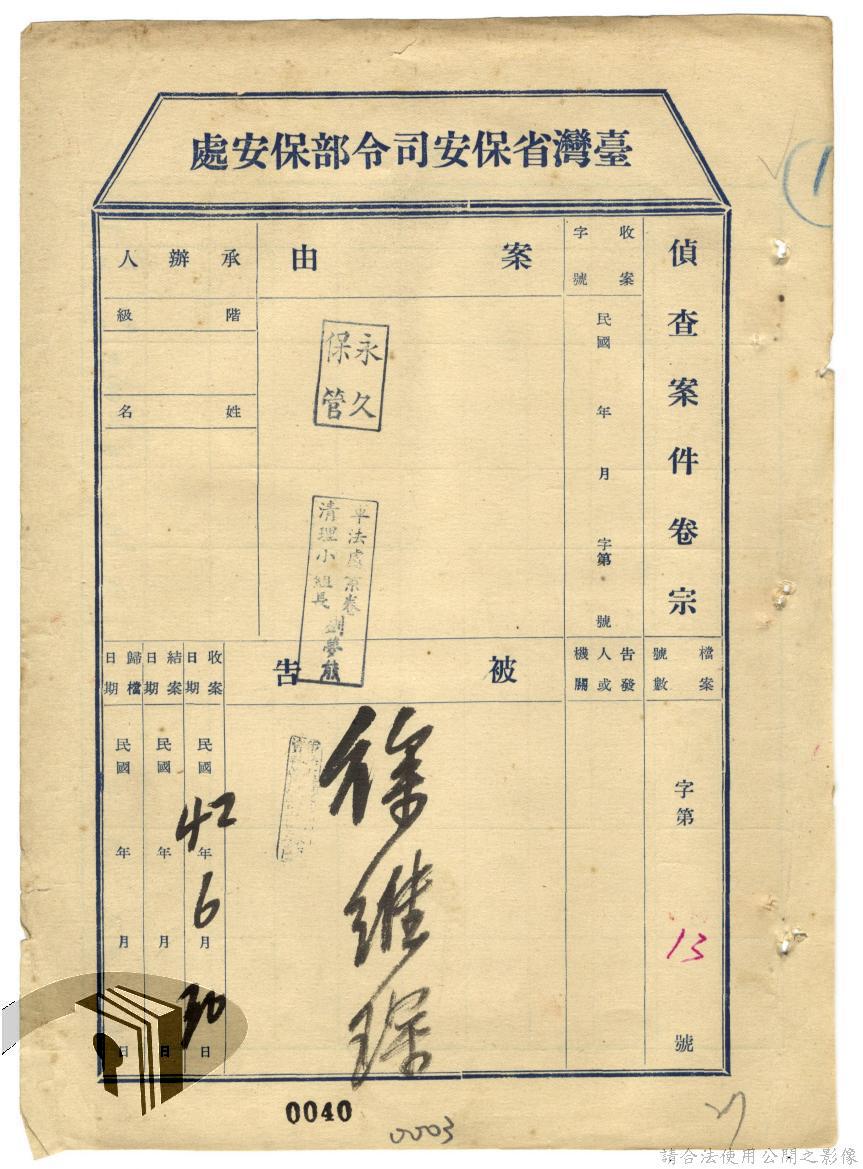 臺灣省保安司令部保安處
偵查案件卷宗
收案字號
民國 年 月 字第 號
案由
承辦人
階級
姓名
永久
保管
軍法處案卷
清理小組長 劉夢熊
檔案號數
字第 13 號
告發人或機關
被告
徐維琛
收案日期
民國 42 年 6 月 30 日
結案日期
民國 年 月 日
歸檔日期
民國 年 月 日
0040
0003
請合法使用公開之影像